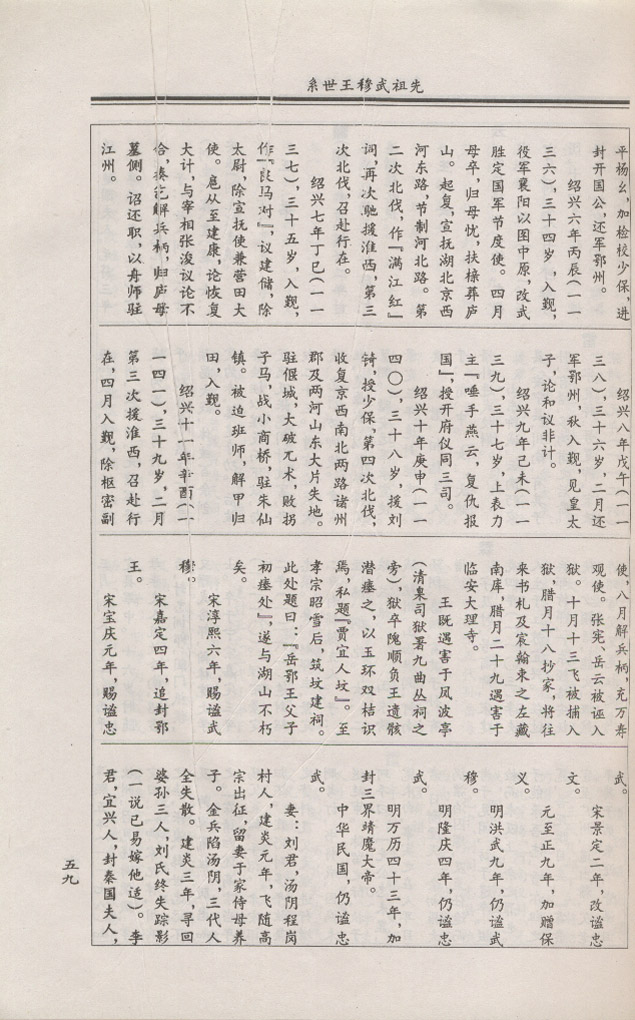 先祖武穆王世系
平杨幺，加检校少保，进
封开国公，还军鄂州。
绍兴六年丙辰（一一
三六），三十四岁，入觐，
役军襄阳以图中原，改武
胜定国军节度使。四月
母卒，归母忧，扶榇葬庐
山。起复，宣抚湖北京西
河东路，节制河北路。第
二次北伐，作『满江红』
词，再次驰援淮西，第三
次北伐，召赴行在。
绍兴七年丁巳（一一
三七），三十五岁，入觐，
作『良马对』，议建储，除
太尉，除宣抚使兼营田大
使。扈从至建康，论恢复
大计，与宰相张浚议论不
合，奏乞解兵柄，归庐母
墓侧。诏还职，以舟师驻
江州。
绍兴八年戊午（一一
三八），三十六岁，二月还
军鄂州，秋入觐，见皇太
子，论和议非计。
绍兴九年己未（一一
三九），三十七岁，上表力
主『唾手燕云，复仇报
国』，授开府仪同三司。
绍兴十年庚申（一一
四〇），三十八岁，援刘
锜，授少保，第四次北伐，
收复京西南北两路诸州
郡及两河山东大片失地。
驻偃城，大破兀术，败拐
子马，战小商桥，驻朱仙
镇。被迫班师，解甲归
田，入觐。
绍兴十一年辛酉（一
一四一），三十九岁，二月
第三次援淮西，召赴行
在，四月入觐，除枢密副
使，八月解兵柄，充万寿
观使。张宪、岳云被诬入
狱。十月十三飞被捕入
狱，腊月十八抄家，将往
来书札及宸翰束之左藏
南库，腊月二十九遇害于
临安大理寺。
王既遇害于风波亭
（清臬司狱署九曲丛祠之
旁），狱卒隗顺负王遗骸
潜瘗之，以玉环双桔识
焉，私题『贾宜人坟』。至
孝宗昭雪后，筑坟建祠。
此处题曰：『岳鄂王父子
初瘗处』，遂与湖山不朽
矣。
宋淳熙六年，赐谥武
穆。
宋嘉定四年，追封鄂
王。
宋宝庆元年，赐谥忠
武。
宋景定二年，改谥忠
文。
元至正九年，加赠保
义。
明洪武九年，仍谥武
穆。
明隆庆四年，仍谥忠
武。
明万历四十三年，加
封三界靖魔大帝。
中华民国，仍谥忠
武。
妻：刘君，汤阴程岗
村人，建炎元年，飞随高
宗出征，留妻于家侍母养
子。金兵陷汤阴，三代人
全失散。建炎三年，寻回
婆孙三人，刘氏终失踪影
（一说已易嫁他适）。李
君，宜兴人，封秦国夫人，
五九